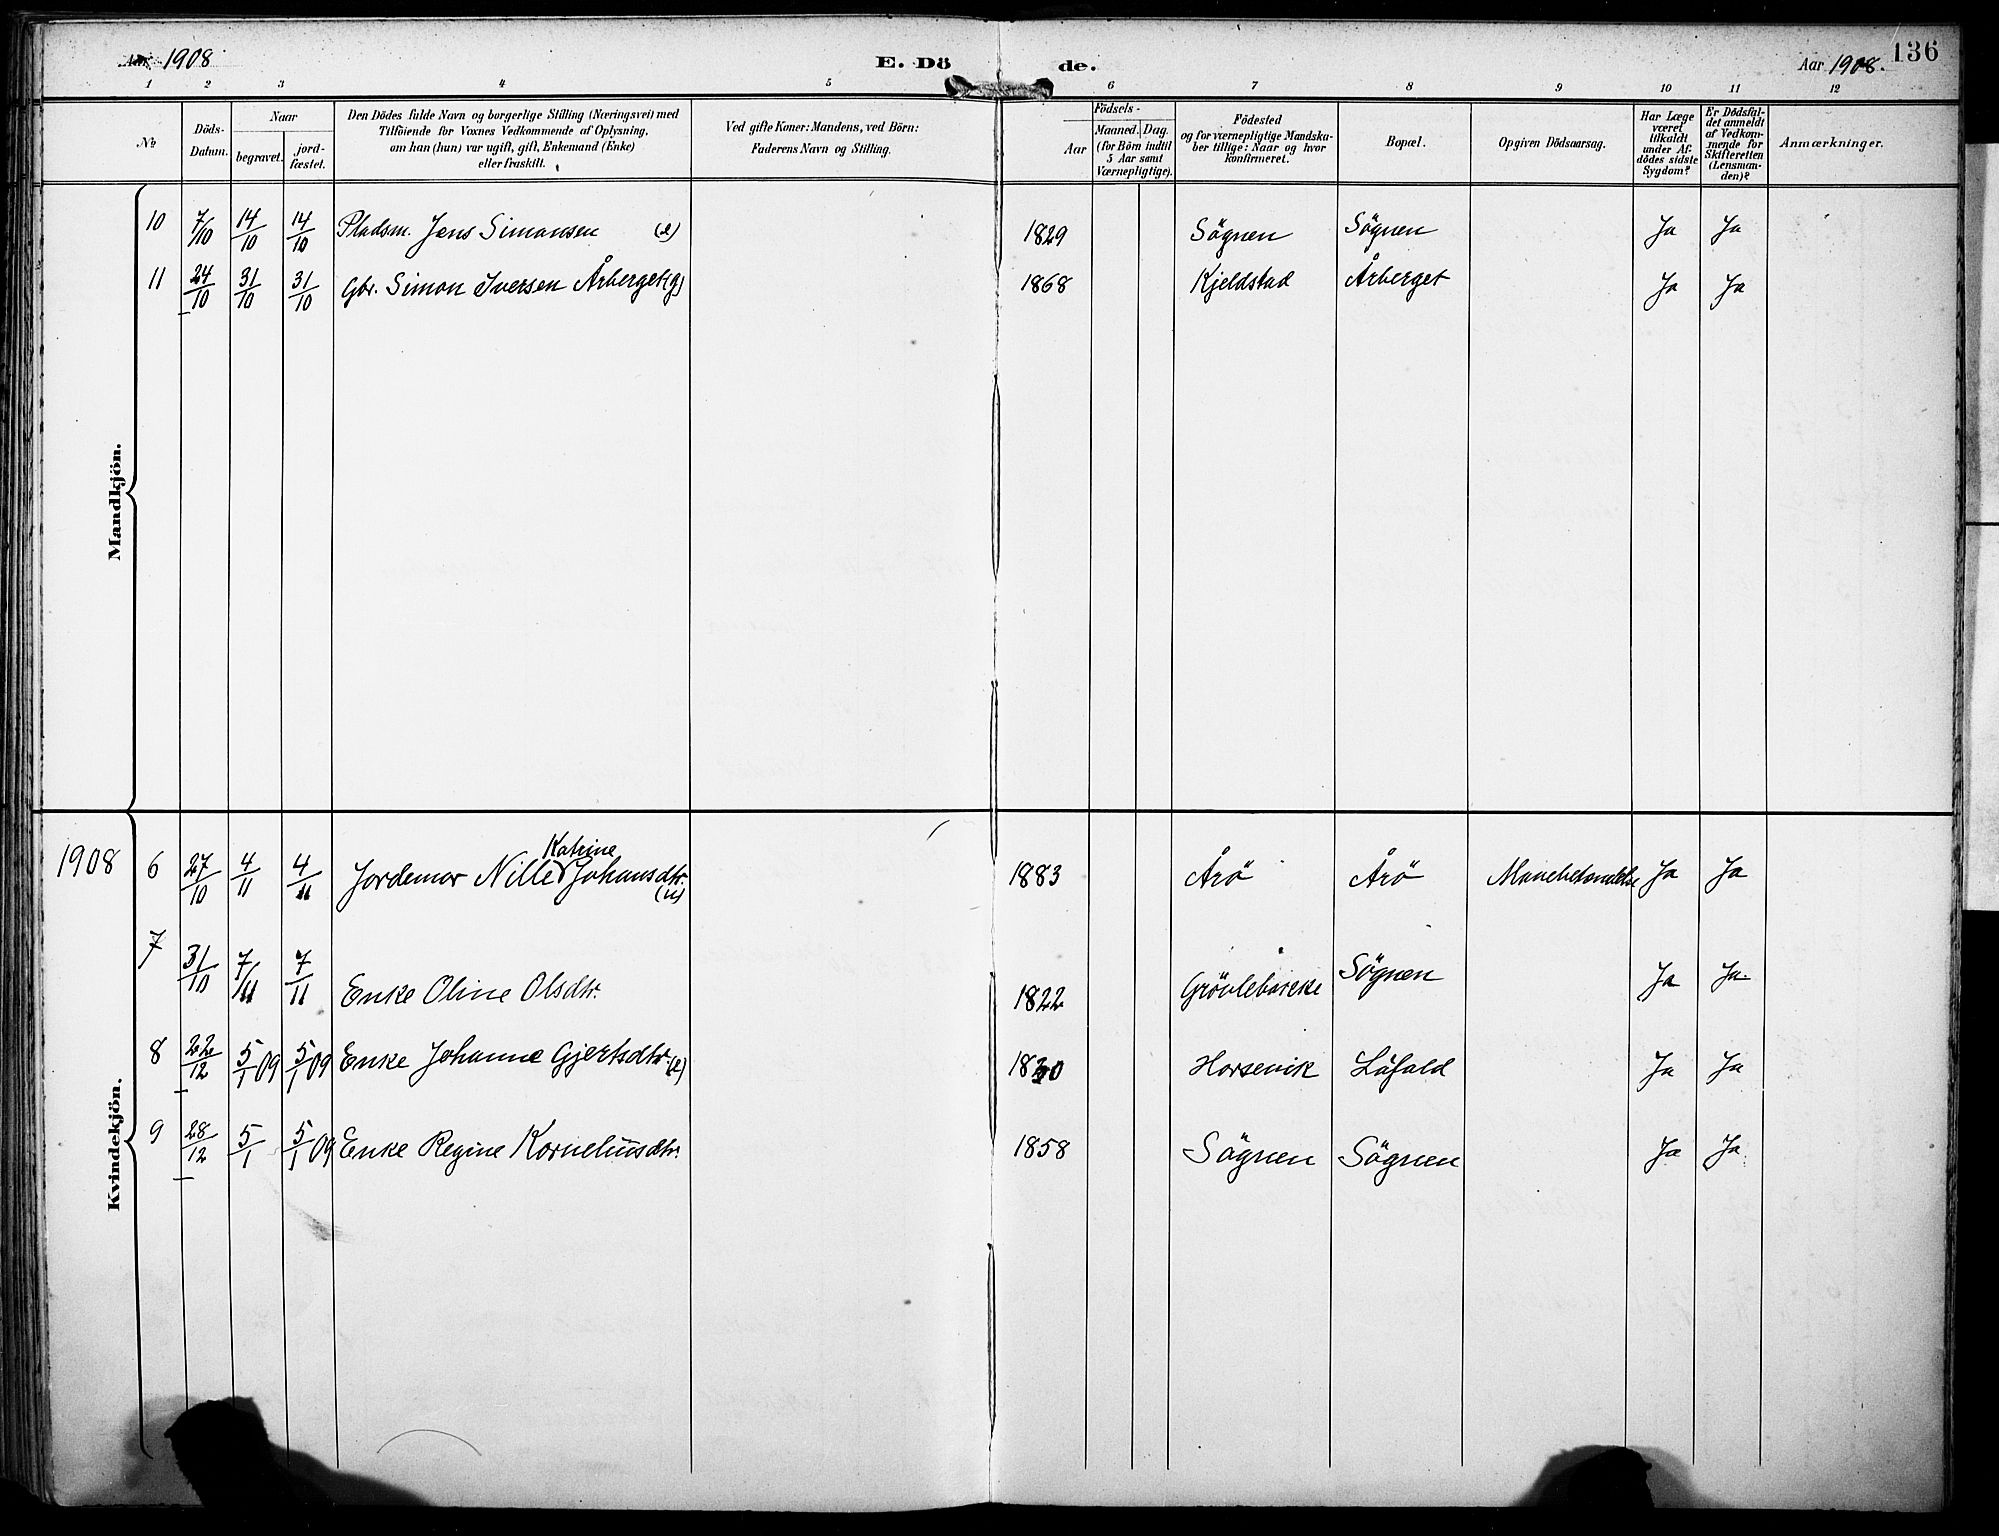 Aar 1908
E. Dö de.
Aar 1908.
136
1 2 3 4 5 6 7 8 9 10 11 12
No
Döds-Datum.
Naar
begravet.
jord-fæstet.
Den Dödes fulde Navn og borgerlige Stilling (Næringsvei) med
Tilföiende for Voxnes Vedkommende af Oplysning,
om han (hun) var ugift, gift, Enkemand (Enke)
eller fraskilt.
Ved gifte Koner: Mandens, ved Börn:
Faderens Navn og Stilling.
Födsels-
Aar
Maaned. Dag.
(for Börn indtil
5 Aar samt
Værnepligtige).
Födested
og for værnepligtige Mandska-
ber tillige: Naar og hvor
konfirmeret.
Bopæl.
Opgiven Dödsaarsag.
Har Læge
været
tilkaldt
under Af-
dödes sidste
Sygdom?
Er Dödsfal-
det anmeldt
af Vedkom-
mende for
Skifteretten
(Lensman-
den)?
Anmærkninger.
Mandkjön.
10 7/10 14/10 14/10 Pladsm. Jens Simonsen (e) 1829 Sögnen Sögnen Ja Ja
11 24/10 31/10 31/10 Gbr. Simon Iversen Årberget (g) 1868 Kjeldstad Årberget Ja Ja
Kvindekjön.
Katrine
1908 6 27/10 4/11 4/11 Jordemor Nille Johansdtr. (u) 1883 Årö Årö Mavebetændelse Ja Ja
7 31/10 7/11 7/11 Enke Oline Olsdtr. 1822 Sögnen Ja Ja.
8 22/12 5/1 09 5/1 09 Enke Johanne Gjertsdtr. (e) 1830 Horsevik Ja Ja
9 28/12 5/1 5/1 09 Enke Regine Korneliusdtr. 1858 Sögnen Sögnen Ja Ja